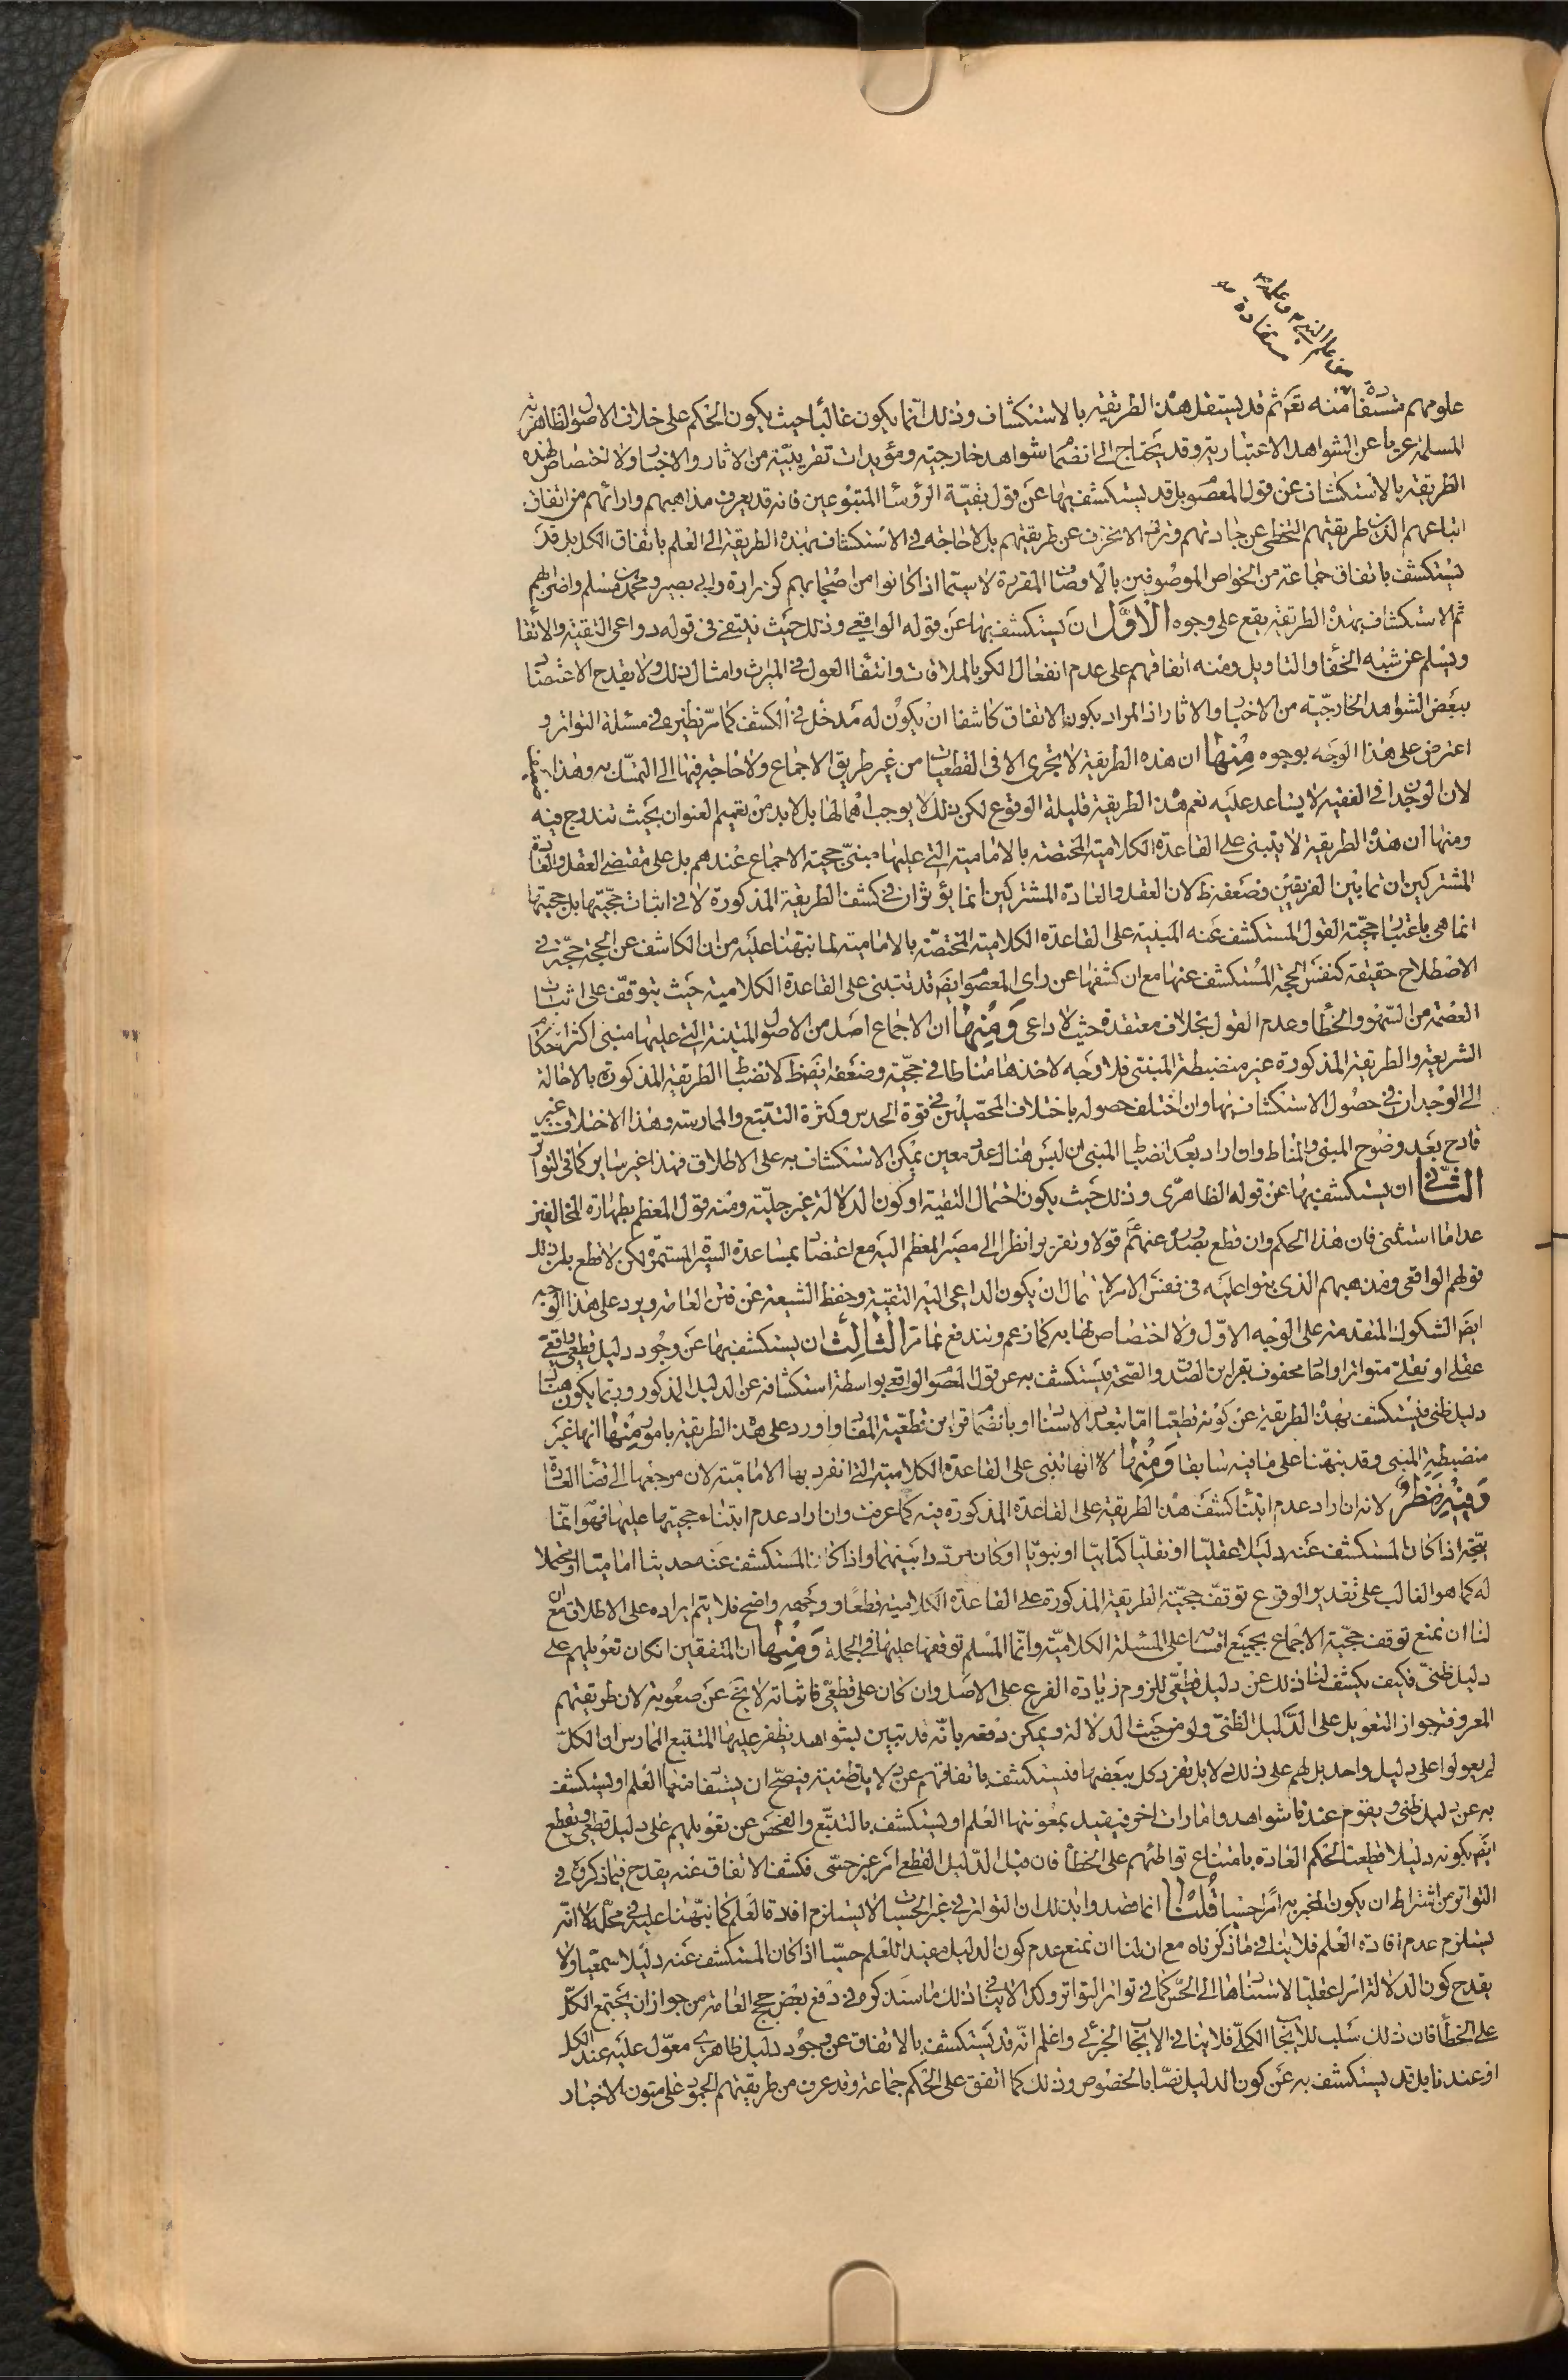 علومهم مستفادة منه تعم ثم قد يستقل هذه الطريقة بالاستكشاف وذلك انما يكون غالبا حيث يكون الحكم على خلاف الاصول الظاهرية
المسلمة عريا عن الشواهد الاعتبارية وقد يحتاج الى انضمام شواهد خارجية ومؤيدات تقريبية من الاثار والاخبار ولا اختصاص لهذه
الطريقة بالاستكشاف عن قول المعصوم بل قد يستكشف بها عن قول بقية الرؤساء المتبوعين فانه قد يعرف مذاهبهم وارائهم من اتفاق
اتباعهم الذين طريقتهم التخطى عن جادتهم وترك الانحراف عن طريقتهم بل لا حاجة في الاستكشاف بهذه الطريقة الى العلم باتفاق الكل بل قد
يستكشف باتفاق جماعة من الخواص الموصوفين بالاوصاف المقررة لا سيما اذا كانوا من اصحابهم كزرارة وابى بصير ومحمد بن مسلم واضرابهم
ثم الاستكشاف بهذه الطريقة يقع على وجوه الاول ان يستكشف بها عن قوله الواقعي وذلك حيث ينتفى فى قوله دواعى التقية والاتقاء
ويسلم عن شبه الخفاء والتاويل ومنه اتفاقهم على عدم انفعال الكر بالملاقات وانتفاء العول في الميراث وامثال ذلك ولا يقدح الاعتضاد
ببعض الشواهد الخارجية من الاخبار والاثار اذ المراد بكون الاتفاق كاشفا ان يكون له مدخل في الكشف كما مر نظيره في مسئلة التواتر و
اعترض على هذا الوجه بوجوه منها ان هذه الطريقة لا تجرى الا فى القطعيات من غير طريق الاجماع ولا حاجة فيها الى التمسك به وهذا
لان الوجدان فى الفقيه لا يساعد عليه نعم هذه الطريقة قليلة الوقوع لكن ذلك لا يوجب اهمالها بل لا بد من تعميم العنوان بحيث تندرج فيه
ومنها ان هذه الطريقة لا يتبنى على القاعدة الكلامية المختصة بالامامية التى عليها مبنى حجية الاجماع عندهم بل على مقتضى العقل والعادة
المشتركين فيما بين الفريقين وضعفه ظ لان العقل والعادة المشتركين انما يؤثران فى كشف الطريقة المذكورة لا فى اثبات حجيتها بل حجيتها
انما هى باعتبار حجية القول المستكشف عنه المبنية على القاعدة الكلامية المختصة بالامامية لما نبهنا عليه من ان الكاشف عن الحجة حجة فى
الاصطلاح حقيقة كنفس الحجة المستكشف عنها مع ان كشفها عن راى المعصوم ايضا قد تبتنى على القاعدة الكلامية حيث يتوقف على اثبات
العصمة من السهو والخطأ وعدم القول بخلاف معتقده حيث لا داعى ومنها ان الاجماع اصل من الاصول المتينة التى عليها مبنى اكثر احكام
الشريعة والطريقة المذكورة غير منضبطة المبنى فلا وجه لاخذها مناطا فى حجيته وضعفه ايضا ظ لانضباط الطريقة المذكورة بالاحالة
الى الوجدان فى حصول الاستكشاف بها وان اختلف حصوله باختلاف المحصلين فى قوة الحدس وكثرة التتبع والممارسة وهذا الاختلاف غير
قادح بعد وضوح المبنى والمناط وان اراد بعدم انضباط المبنى ان ليس هناك عدد معين يمكن الاستكشاف به على الاطلاق فهذا غير ضاير كما فى التواتر
الثانى ان يستكشف بها عن قوله الظاهرى وذلك حيث يكون احتمال التقية او كون الدلالة غير جلية ومنه قول المعظم بطهارة المخالفين
عدا ما استثنى فان هذا الحكم وان قطع بصدوره عنهم قولا وتقريرا نظرا الى مصير المعظم اليه مع اعتضاده بمساعدة السيرة المستمرة لكن لا قطع بان ذلك
قولهم الواقعى ومذهبهم الذى بنوا عليه فى نفس الامر لاحتمال ان يكون الداعى اليه التقية وحفظ الشيعة عن فتن العامة ويرد على هذا الوجه
ايضا الشكوك المتقدمة على الوجه الاول ولا اختصاص لها به كما زعم وتندفع بما مر الثالث ان يستكشف بها عن وجود دليل قطعى واقعى
عقلى او نقلى متواتر او احاد محفوف بقراين الصدق والصحة فيستكشف به عن قول المعصوم الواقعى بواسطة استكشافه عن الدليل المذكور وربما يكون هناك
دليل ظنى فيستكشف بهذه الطريقة عن كونه قطعيا اما بتعدد الاسناد او بانضمام قراين قطعية المفاد واورد على هذه الطريقة بامور منها انها غير
منضبطة المبنى وقد نبهنا على ما فيه سابقا ومنها انها لا تبنى على القاعدة الكلامية التى انفرد بها الامامية لان مرجعها الى قضاء العادة
وفيه نظر لانه ان اراد عدم ابتناء كشف هذه الطريقة على القاعدة المذكورة ففيه كما عرفت وان اراد عدم ابتناء حجيتها عليها فهو انما
يتجه اذا كان المستكشف عنه دليلا عقليا او نقليا كتابيا او نبويا او كان مرددا بينهما واذا كان المستكشف عنه حديثا اماميا او محتملا
له كما هو الغالب على تقدير الوقوع توقف حجية الطريقة المذكورة على القاعدة الكلامية قطعا ووجهه واضح فلا يتم ايراده على الاطلاق مع ان
لنا ان نمنع توقف حجية الاجماع بجميع اقسامه على المسئلة الكلامية وانما المسلم توقفها عليها فى الجملة ومنها ان المتفقين ان كان تعويلهم على
دليل ظنى فكيف يكشف لنا ذلك عن دليل قطعى للزوم زيادة الفرع على الاصل وان كان على قطعى فاثباته لا يخ عن صعوبة لان طريقتهم
المعروفة جواز التعويل على الدليل الظنى ولو من حيث الدلالة ويمكن دفعه بانه قد تبين بشواهد يظفر عليها المتتبع الممارس ان الكل
لم يعولوا على دليل واحد بل لهم على ذلك دلايل تفرد كل ببعضها فيستكشف باتفاقهم عن دلايل ظنية فيصح ان يستفاد منها العلم او يستكشف
به عن دليل ظنى ويقوم عندنا شواهد وامارات اخر فيفيد بمعونتها العلم او يستكشف بالتتبع والفحص عن تعويلهم على دليل قطعى ويقطع
ايضا بكونه دليلا قطعيا لحكم العادة بامتناع تواطئهم على الخطأ فان قيل الدليل القطعى امر غير حسى فكشف الاتفاق عنه يقدح فيما ذكروه فى
التواتر من اشتراط ان يكون المخبر به امرا حسيا قلنا انما قصدوا بذلك ان التواتر فى غير الحسيات لا يستلزم افادة العلم كما نبهنا عليه فى محله لا انه
يستلزم عدم افادة العلم فلا ينافى ما ذكرناه مع ان لنا ان نمنع عدم كون الدليل مفيد للعلم حسيا اذا كان المستكشف عنه دليلا سمعيا ولا
يقدح كون الدلالة امرا عقليا لاستنادها الى الحس كما فى تواتر التواتر وكذا لا ينافى ذلك ما سنذكره فى دفع بعض حجج العامة من جواز ان يجتمع الكل
على الخطأ فان ذلك سلب للايجاب الكلى فلا ينافى الايجاب الجزئى واعلم انه قد يستكشف بالاتفاق عن وجود دليل ظاهرى معول عليه عند الكل
او عندنا بل قد يستكشف به عن كون الدليل نصا بالخصوص وذلك كما اتفق على الحكم جماعة وقد عرف من طريقتهم الجمود على متون الاخبار